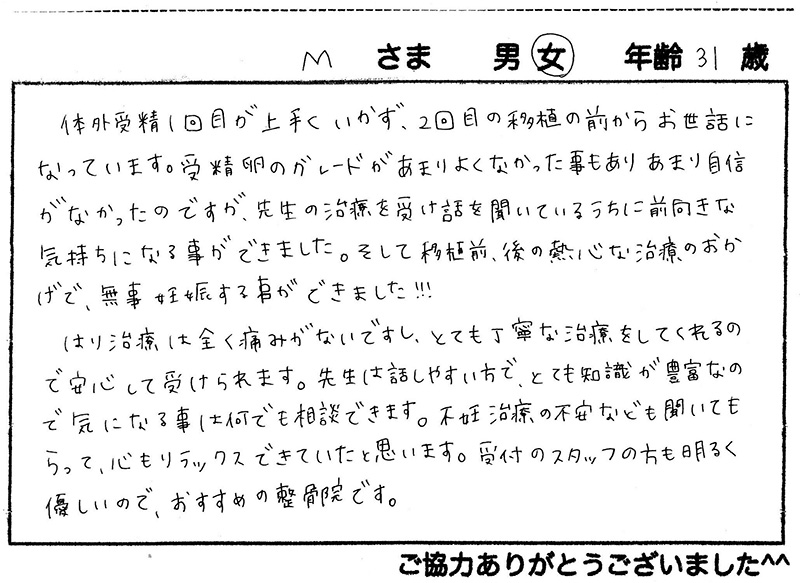 M さま 男 女 年齢 31 歳
体外受精1回目が上手くいかず、2回目の移植の前からお世話に
なっています。受精卵のグレードがあまりよくなかった事もあり あまり自信
がなかったのですが、先生の治療を受け話を聞いているうちに前向きな
気持ちになる事ができました。そして移植前、後の熱心な治療のおか
げで、無事 妊娠する事ができました!!!
はり治療は全く痛みがないですし、とても丁寧な治療をしてくれるの
で安心して受けられます。先生は話しやすい方で、とても知識が豊富なの
で気になる事は何でも相談できます。不妊治療の不安なども聞いても
らって、心もリラックスできていたと思います。受付のスタッフの方も明るく
優しいので、おすすめの整骨院です。
ご協力ありがとうございました^^